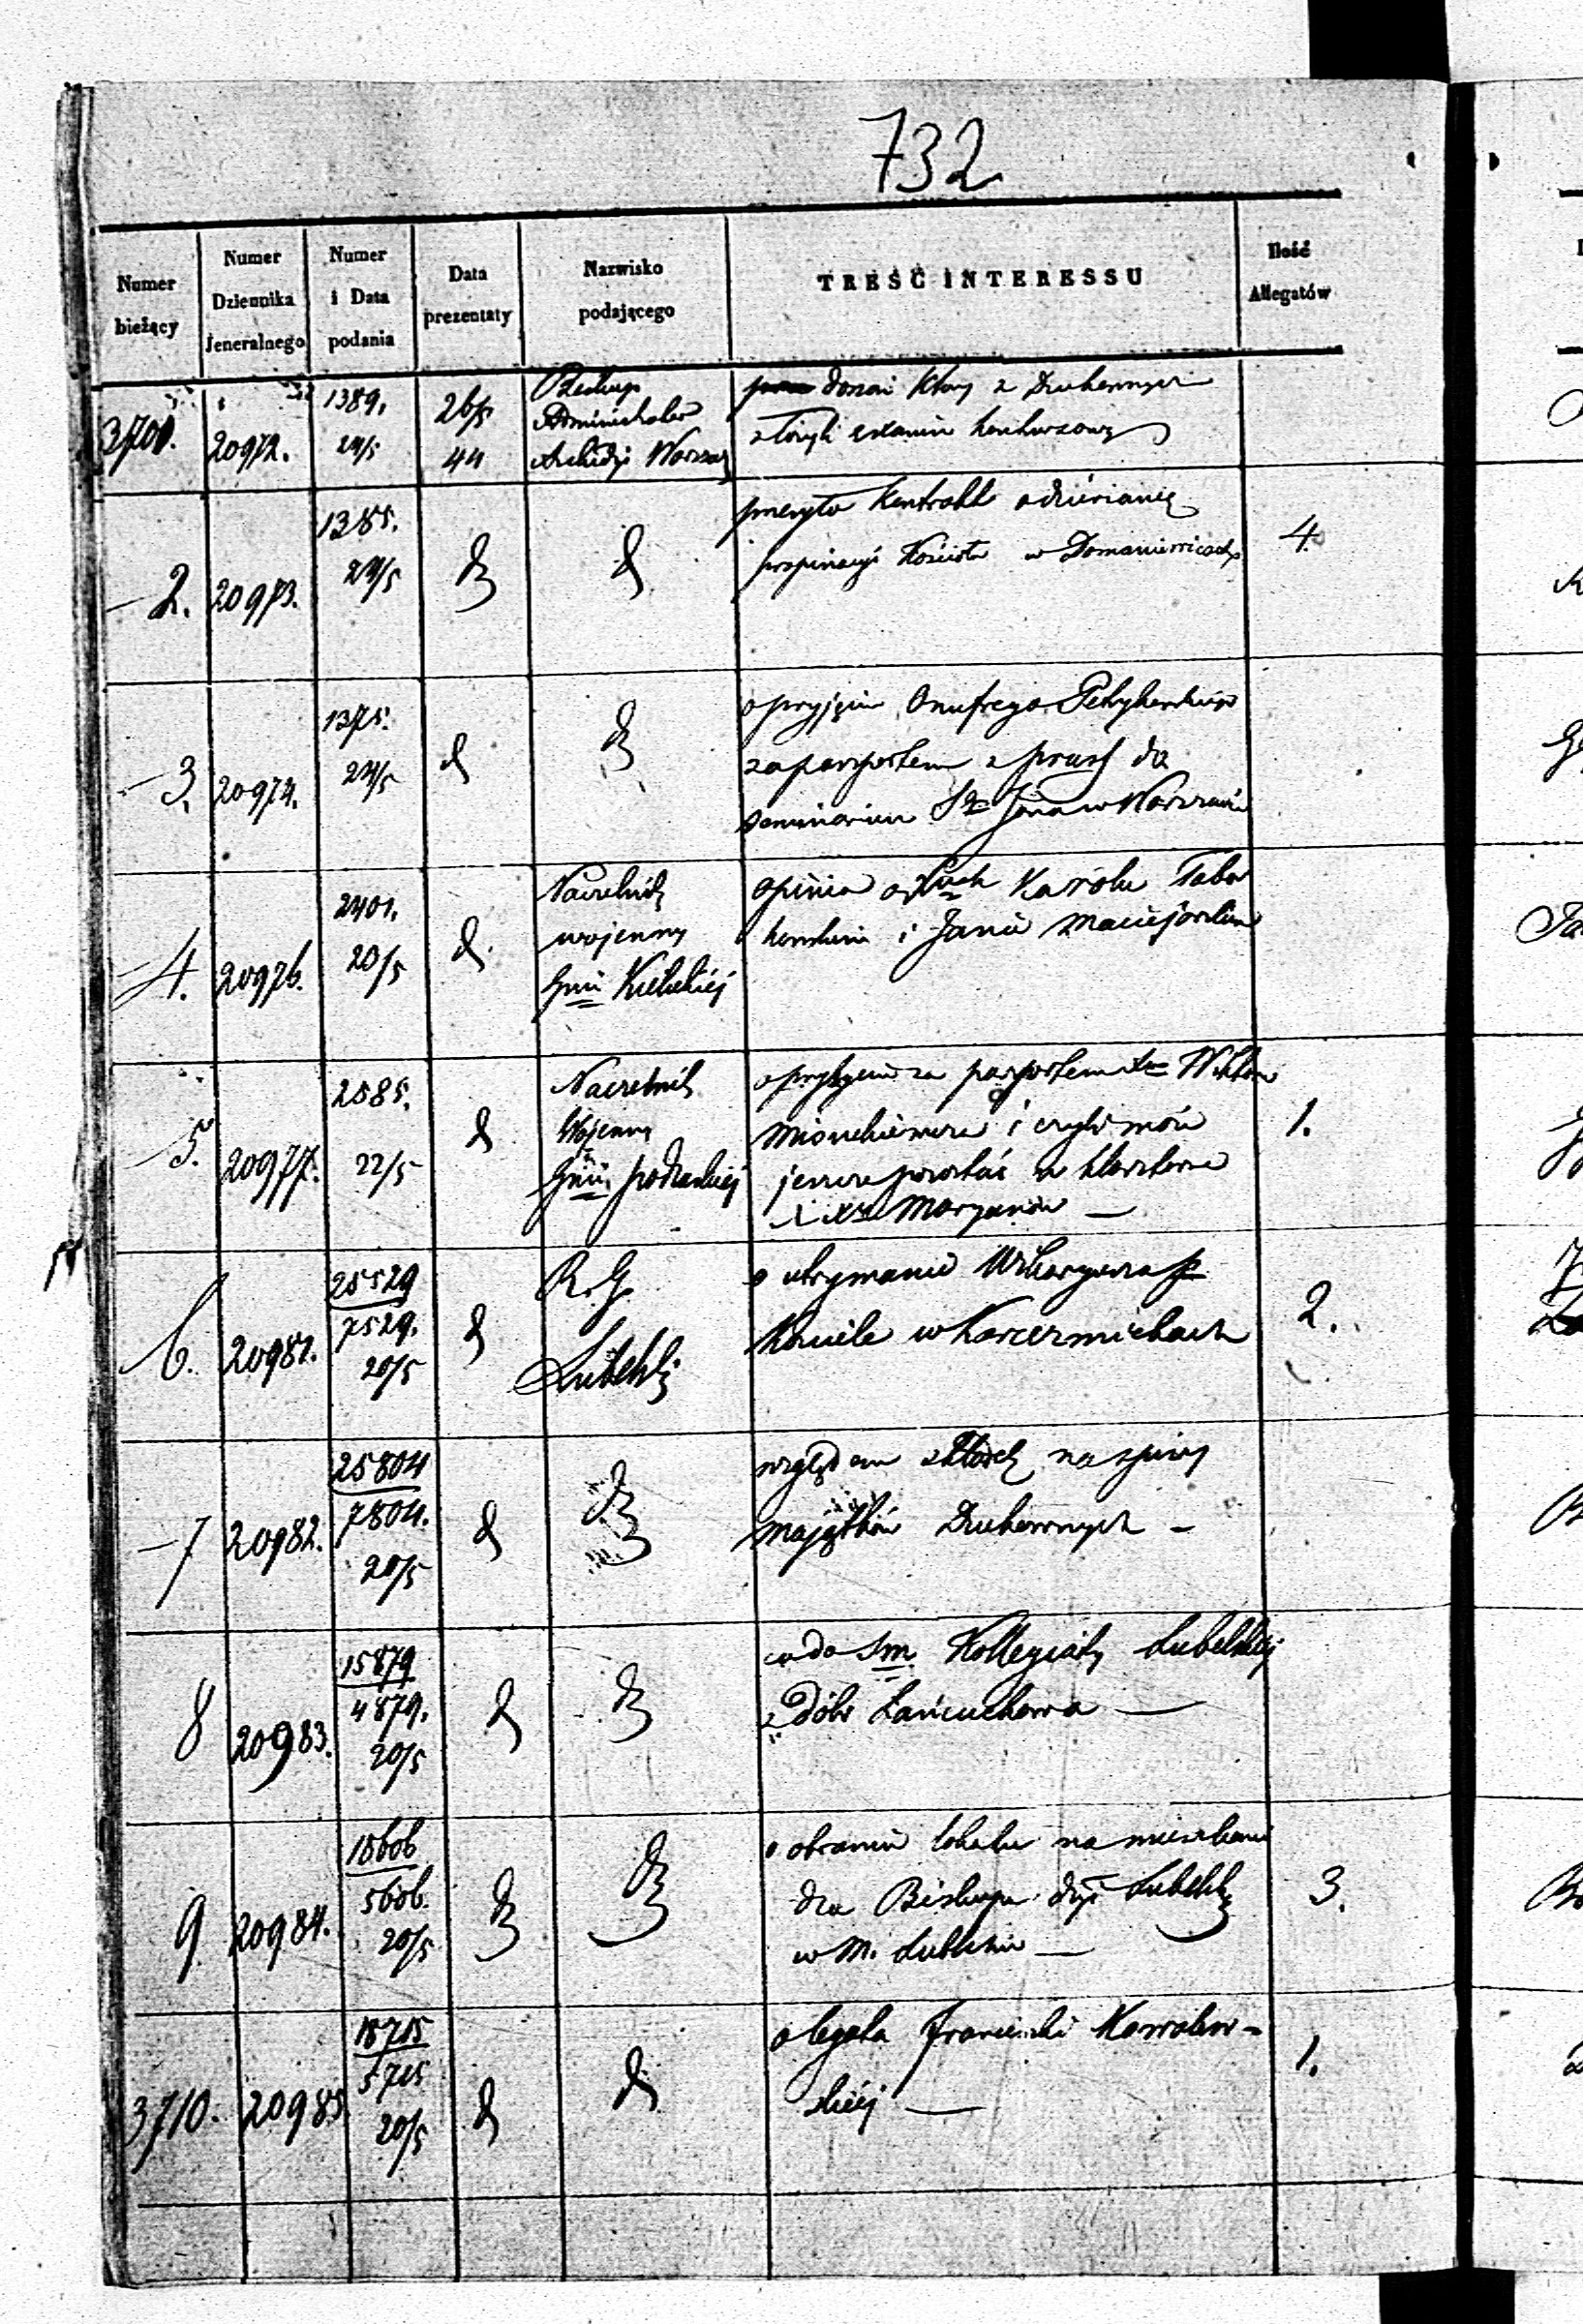 732
Numer bieżący
Numer Dziennika Jeneralnego
Numer i Data podania
Data prezentaty
Nazwisko podającego
TREŚĆ INTERESSU
Ilość Allegatów
3701.
20972.
1389.
24/5
26/5
44
Biskup
Administrator
Archidyi Warszaw
donosi Który z Duchownych
złożyli examin konkursowy
2.
20973.
1385.
24/5
d
d
przesyła Kontrakt odzierżawię
propinacyi Kościoła w Domaniewicach
4.
3.
20974.
1375.
24/5
d
d
o przyjęciu Onufrego
za paszportem z Pruss do
Seminarium Sgo Jana w Warszawie
4.
20976.
2401.
20/5
d.
Naczelnik
wojenny
Gnii Kieleckiéj
opinia o Xach Karolu Tabor
i Janie Maciejowskim
5.
20977.
2585.
22/5
d
Naczelnik
Wojenny
Gnii podlaskiéj
o przybyciu za paszportem Xa
i czyli może
jeszcze pozostać w klasztorze
XX Maryanów —
1.
6.
20981.
25529
7529.
20/5
d
R. G.
Lubelski
o utrzymanie Wikaryusza p.
Kościele w Karczmiskach
2.
7
20982.
25804
7804.
20/5
d
d
względem składek na spisy
majątków Duchownych —
8
20983.
15879
4879.
20/5
d
d
co do Sm Kollegiaty Lubelskiéj
z Dóbr Łańcuchowa —
9.
20984.
18606
5606.
20/5
d
d
o obraniu lokalu na mieszkanie
dla Biskupa dyi Lubelski
w M. Lublinie —
3.
3710.
20985
18715
5715
20/5
d
d
o legata Franciszki Kowalew-
skiéj —
1.